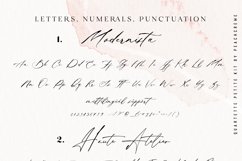 LETTERS, NUMERALS, PUNCTUATION
1.
Modernista
Aa Bb Cc Dd Ee Ff Gg Hh Ii Jj Kk Ll Mm
Nn Oo Pp Qq Rr Ss Tt Uu Vv Ww Xx Yy Zz
multilingual support
2.
Haute Atelier
QUARTETTE PETITE KIT BY PEARCREME